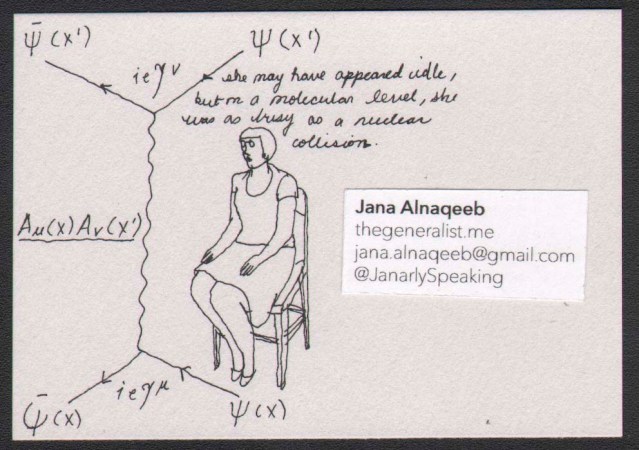 ψ̄(x') ψ(x')
ieγ^ν
she may have appeared idle,
but on a molecular level, she
was as busy as a nuclear
collision.
A_μ(x) A_ν(x')
Jana Alnaqeeb
thegeneralist.me
jana.alnaqeeb@gmail.com
@JanarlySpeaking
ieγ^μ
ψ̄(x) ψ(x)